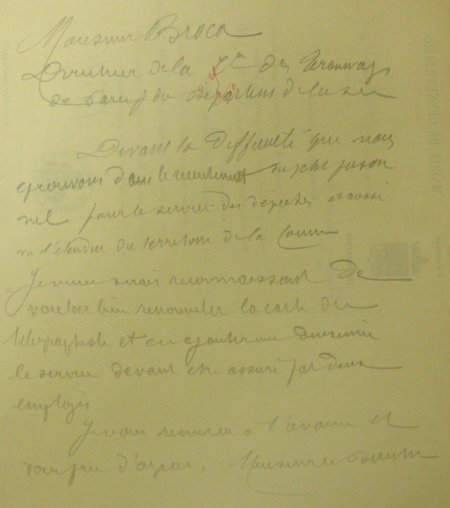 Monsieur Broca
Directeur de la Cie des Tramways
de Paris du Département de la Seine
Devant la difficulté que nous
éprouvons dans le recrutement du personnel
nel pour le service des dépêches et aussi
vu l'étendue du territoire de la Commune
Je vous serais reconnaissant de
vouloir bien renouveler la carte du
télégraphiste et en ajouter une deuxième
le service devant être assuré par deux
employés
Je vous remercie à l'avance et
vous prie d'agréer, Monsieur le Directeur